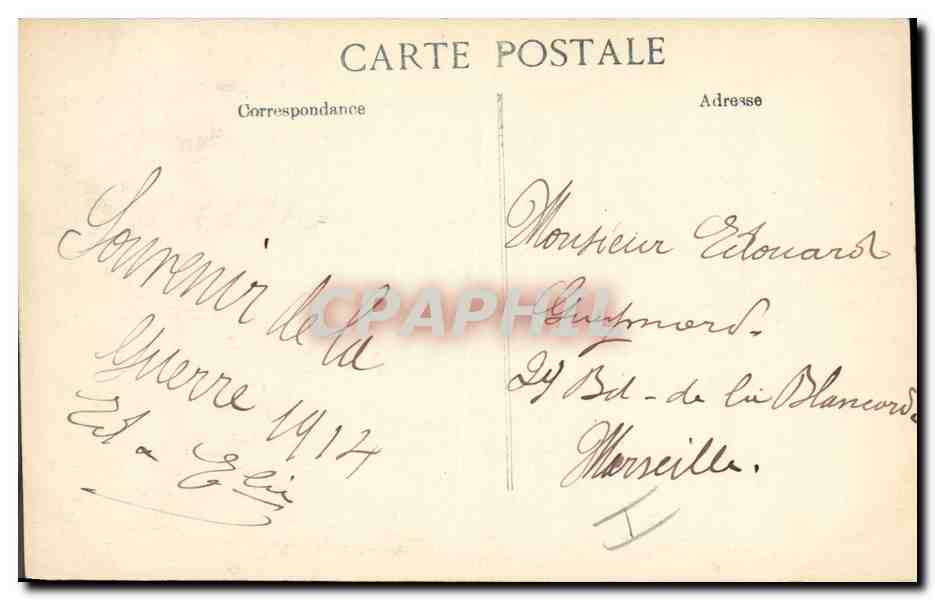 CARTE POSTALE
Correspondance
Adresse
Souvenir de la
Guerre 1914
Ed - Elie
Monsieur Edouard
Guymard -
29 Bd - de la Blancarde
Marseille.
I
CPAPHIL